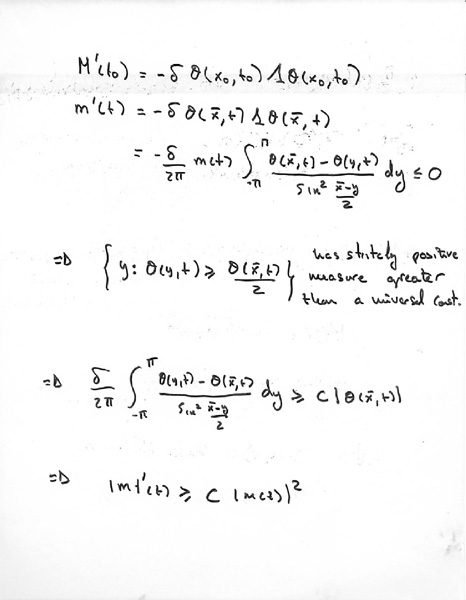 M'(t₀) = -δ θ(x₀,t₀) Λθ(x₀,t₀)
m'(t) = -δ θ(x̄,t) Λθ(x̄,t)
= -δ/2π m(t) ∫_{-π}^{π} (θ(x̄,t) - θ(y,t))/(sin² (x̄-y)/2) dy ≤ 0
⇒ { y: θ(y,t) ≥ θ(x̄,t)/2 } has strictely positive
measure greater
than a universal const.
⇒ δ/2π ∫_{-π}^{π} (θ(y,t) - θ(x̄,t))/(sin² (x̄-y)/2) dy ≥ C|θ(x̄,t)|
⇒ |m|'(t) ≥ C |m(t)|²